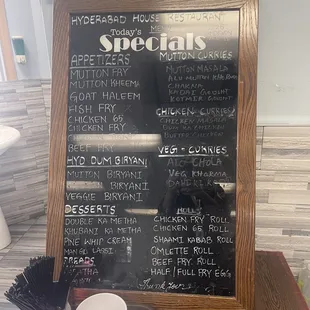 HYDERABAD HOUSE RESTAURANT
Today's
Specials
APPETIZERS
MUTTON FRY
MUTTON KHEEMA
GOAT HALEEM
FISH FRY
CHICKEN 65
CHICKEN FRY
BEEF FRY
HYD DUM BIRYANI
MUTTON BIRYANI
BIRYANI
VEGGIE BIRYANI
DESSERTS
DOUBLE KA METHA
KHUBANI KA METHA
PINE WHIP CREAM
LASSI
BREADS
MUTTON CURRIES
MUTTON MASALA
CHAKNA
CHICKEN CURRIES
VEG - CURRIES
ALO CHOLA
VEG KHORMA
ROLLS
CHICKEN FRY ROLL
CHICKEN 65 ROLL
SHAAMI KABAB ROLL
OMLETTE ROLL
BEEF FRY ROLL
HALF/FULL FRY EGG